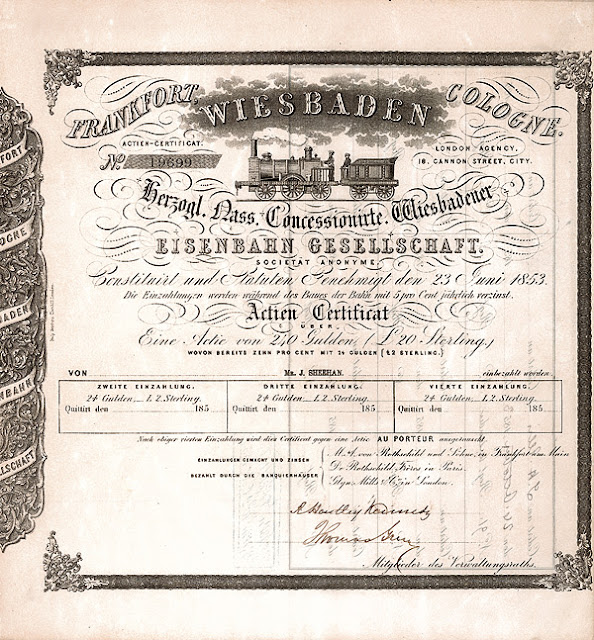 FRANKFORT, WIESBADEN COLOGNE.
ACTIEN-CERTIFICAT.
No. 19699
LONDON AGENCY,
18, CANNON STREET, CITY.
Herzogl. Nass. Concessionirte. Wiesbadener
EISENBAHN GESELLSCHAFT.
SOCIETAT ANONYME,
Constituirt und Statuten Genehmigt den 23 Juni 1853.
Die Einzahlungen werden während des Baues der Bahn mit 5 pro Cent jährlich verzinst.
Actien Certificat
ÜBER
Eine Actie von 240 Gulden, (£20 Sterling.)
WOVON BEREITS ZEHN PRO CENT MIT 24 GULDEN (£2 STERLING.)
VON MR. J. SHEEHAN. einbezahlt worden.
ZWEITE EINZAHLUNG. DRITTE EINZAHLUNG. VIERTE EINZAHLUNG.
24 Gulden, L 2. Sterling. 24 Gulden, L 2. Sterling. 24 Gulden, L 2. Sterling.
Quittirt den 185 Quittirt den 185 Quittirt den 185
Nach obiger vierten Einzahlung wird dies Certificat gegen eine Actie AU PORTEUR ausgetauscht.
EINZAHLUNGEN GEMACHT UND ZINSEN
BEZAHLT DURCH DIE BANQUIERHÄUSER
M. A. von Rothschild und Söhne, in Frankfurt am Main
De Rothschild Frères in Paris.
Glyn Mills & Co. in London.
Mitglieder des Verwaltungsraths.
FORT
OGNE
BADEN
ENBAHN
LLSCHAFT